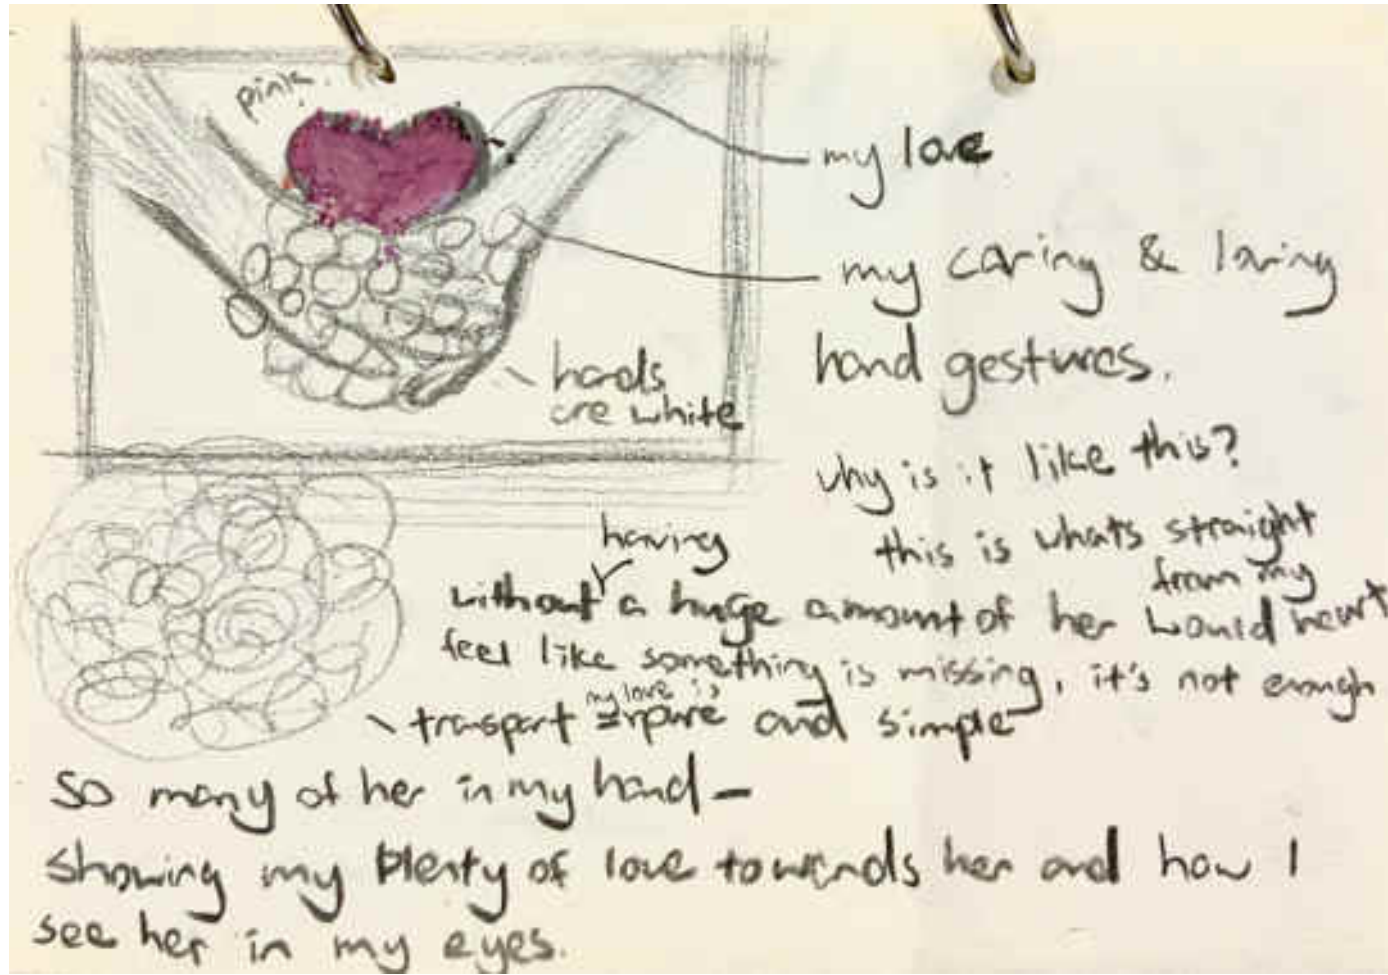 pink.
my love
my caring & loving
hand gestures.
hands
are white
why is it like this?
this is whats straight
from my
heart
having
without a huge amount of her would
feel like something is missing, it's not enough
my love is
transpart = pure and simple
so many of her in my hand –
showing my plenty of love towards her and how I
see her in my eyes.